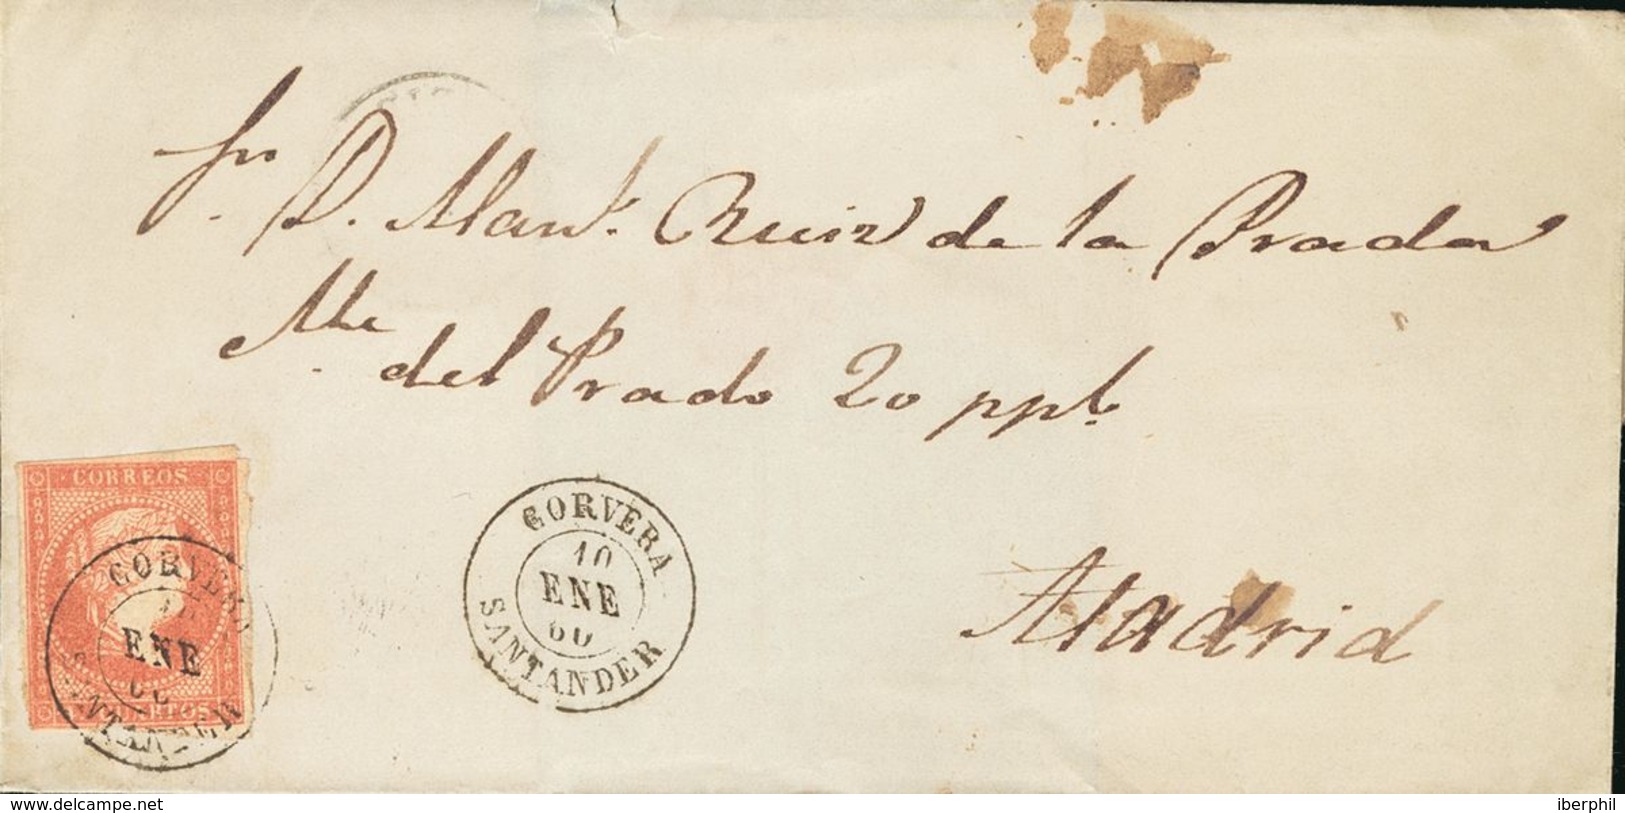 Sr. D. Man.l Ruiz de la Prada
Clle
del Prado 20 ppl.
Madrid
CORREOS
CORVERA
10
ENE
60
SANTANDER
CORVERA
10
ENE
60
SANTANDER
www.delcampe.net
iberphil